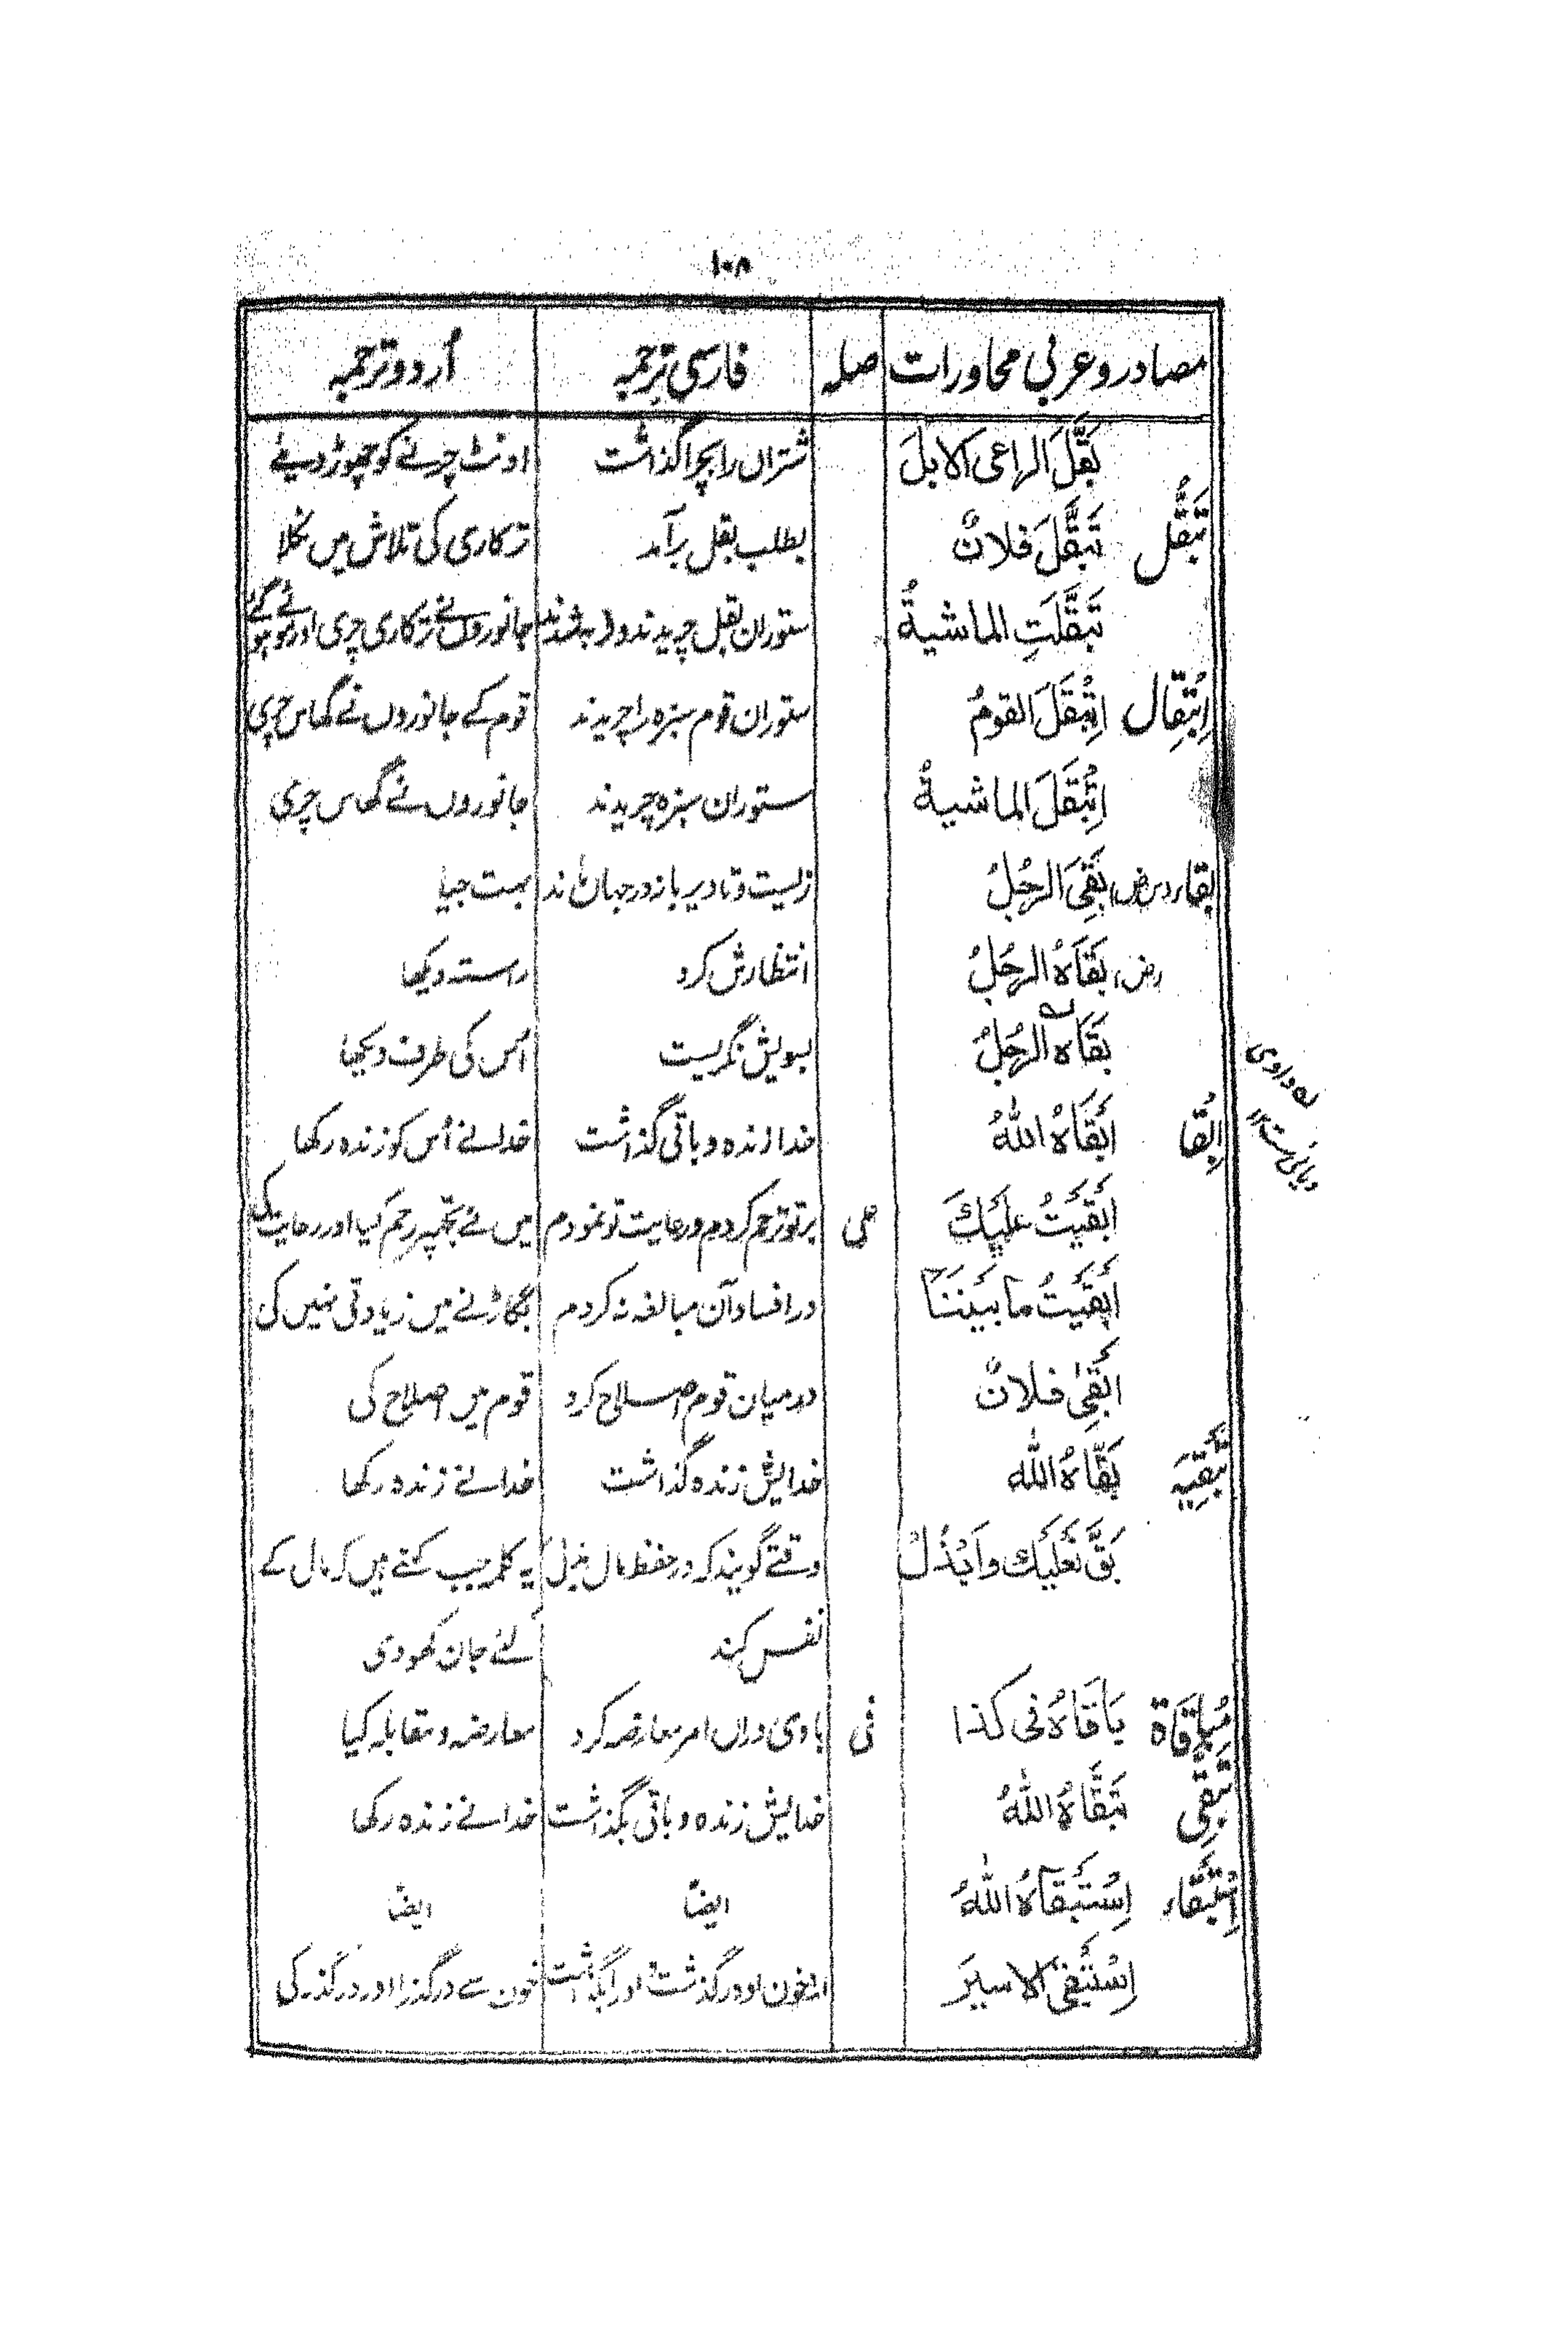 ۱۰۸
مصادر و عربی محاورات صلہ فارسی ترجمہ اُردو ترجمہ
بَقَّلَ الراعی الابلَ شتراں را بچرا گذاشت اونٹ چرنے کو چھوڑ دیئے
تَبَقُّل تَبَقَّلَ فلانٌ بطلب بقل برآمد ترکاری کی تلاش میں نکلا
تَبَقَّلَتِ الماشیةُ ستوران بقل چریدند و فربہ شدند جانوروں نے ترکاری چری اور موٹے ہو گئے
اِبْتِقَال اِبْتَقَلَ القومُ ستوران قوم سبزہ را چریدند قوم کے جانوروں نے گھاس چری
اِبْتَقَلَ الماشیةُ ستوران سبزہ چریدند جانوروں نے گھاس چری
بقاء (س ض) بَقِیَ الرجُلُ زلیست و تا دیر باز در جہان ماند بہت جیا
(ض) بَقَاہُ الرجُلُ انتظارش کرد راستہ دیکھا
بَقَاہ الرجُلُ بسویش نگریست اُس کی طرف دیکھا
لہ واوی و یائی ست ۱۲
اِبْقَا اَبْقَاہُ اللّٰہُ خدا زندہ و باقی گذاشت خدا نے اُس کو زندہ رکھا
اَبْقَیْتُ عَلَیْكَ علی بر تو ترحم کردم و رعایت تو نمودم میں نے تجھپر رحم کیا اور رعایت کی
اَبْقَیْتُ ما بَیْنَنَا در افساد آن مبالغہ نہ کردم بگاڑنے میں زیادتی نہیں کی
اَبْقٰی فلانٌ درمیان قوم اصلاح کرد قوم میں اصلاح کی
تَبْقِیَہ بَقَّاہُ اللّٰہ خدایش زندہ گذاشت خدا نے زندہ رکھا
بَقَّ نَعْلَیْك وابْذُلْ وقتے گویند کہ در حفظ مال بذل یہ کلمہ جب کہتے ہیں کہ مال کے
نفس کند لئے جان کھو دی
مُبَاقَاة بَاقَاہُ فی کذا فی باوی دراں امر معارضہ کرد معارضہ و مقابلہ کیا
تَبَقِّی تَبَقَّاہُ اللّٰہُ خدایش زندہ و باقی بگذاشت خدا نے زندہ رکھا
اِسْتِبْقَاء اِسْتَبْقَاہُ اللّٰہُ ایضاً ایضاً
اِسْتَبْقَی الاسیرَ از خون او درگذشت خون سے درگزرا اور درگذر کی